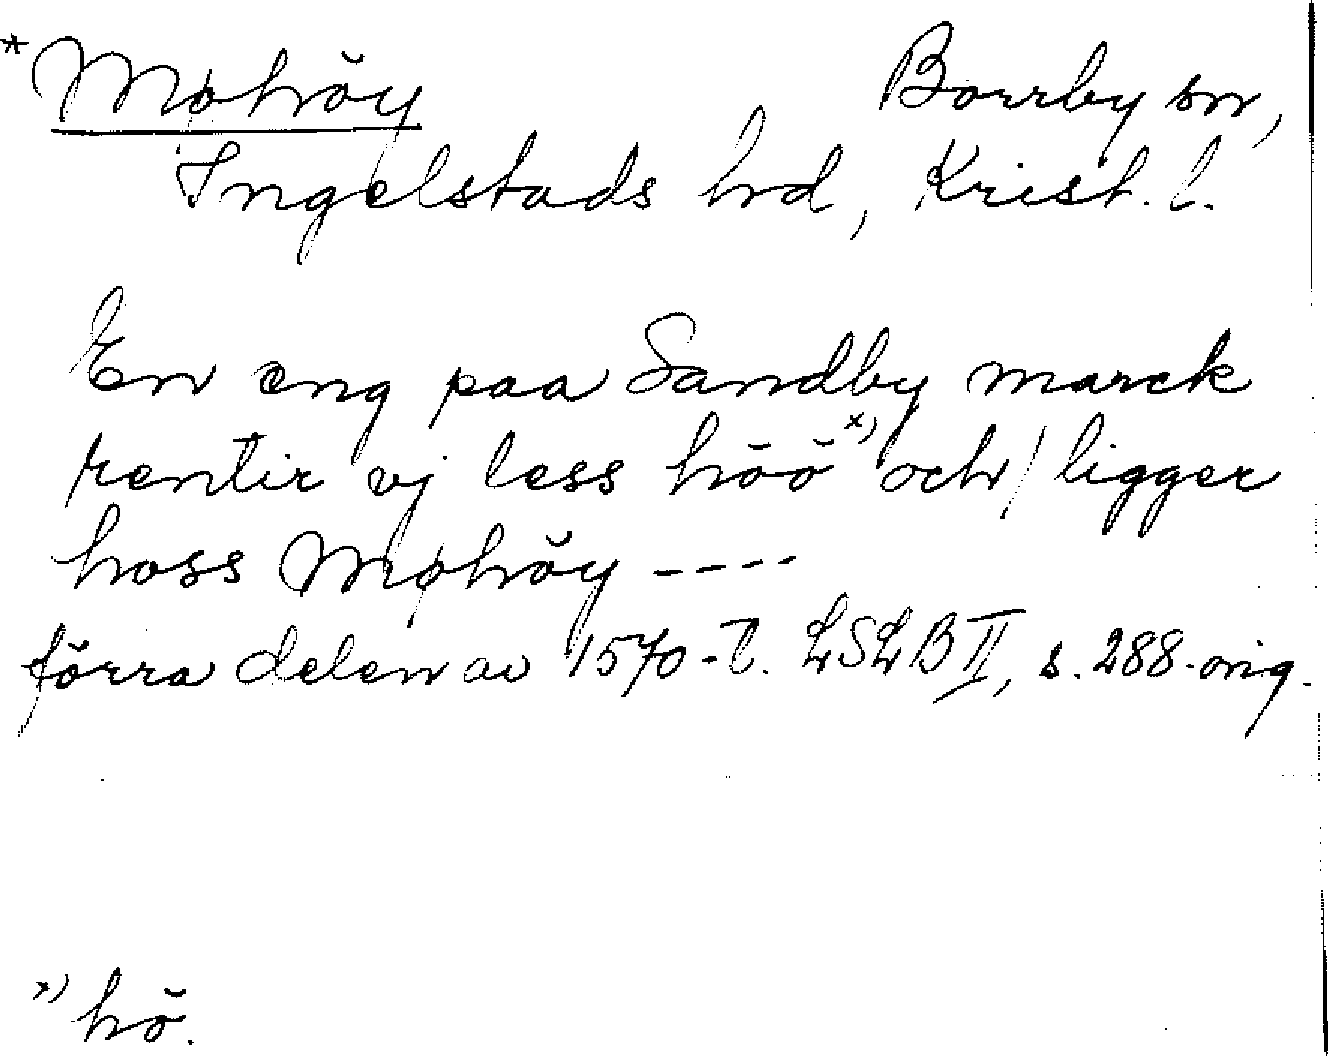 *Møhöy Borrby sn,
Ingelstads hd, Krist. l.
En eng paa Sandby marck
rentir vj less höö x) och / ligger
hoss Møhöy ----
förra delen av 1570-t. LSLB II, s. 288. orig.
x) hö.